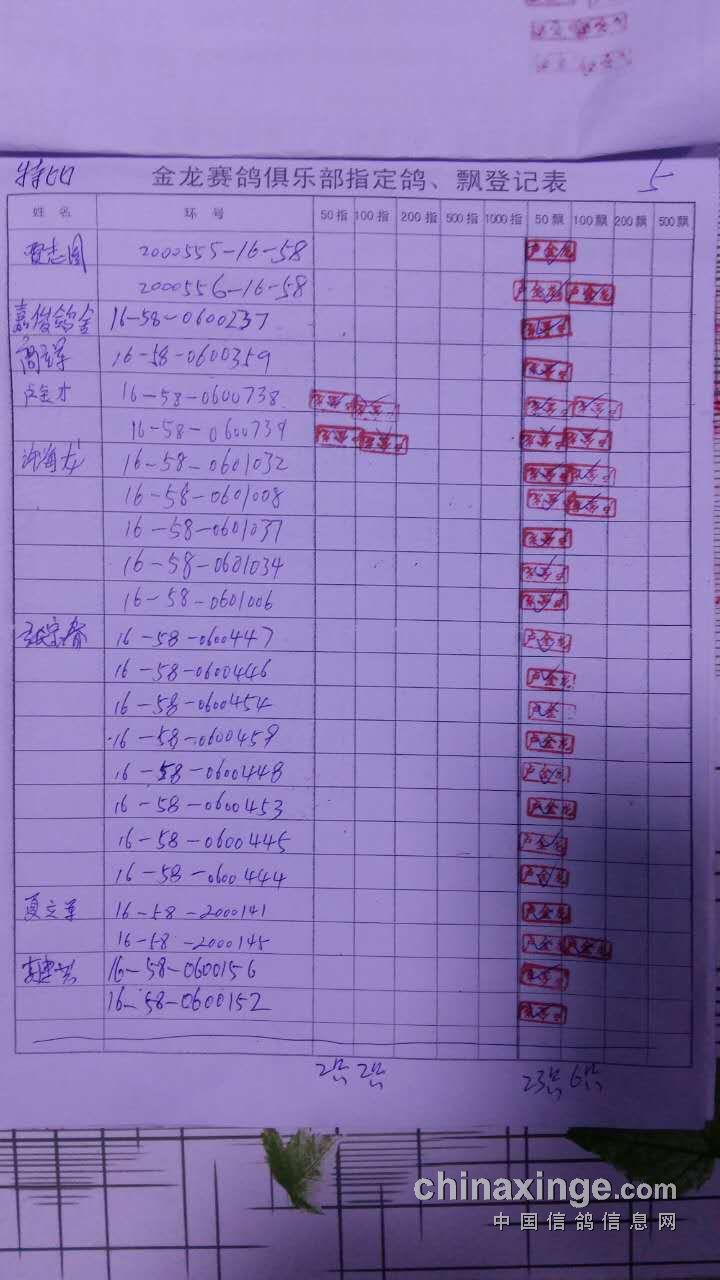 特四 金龙赛鸽俱乐部指定鸽、飘登记表 5
姓 名 环 号 50指 100指 200指 500指 1000指 50飘 100飘 200飘 500飘
2000555-16-58 卢金龙
2000556-16-58 卢金龙 卢金龙
嘉俊鸽舍 16-58-0600237 卢金龙
16-58-0600359 卢金龙
卢金才 16-58-0600738 卢金龙 卢金龙 卢金龙 卢金龙
16-58-0600739 卢金龙 卢金龙 卢金龙 卢金龙
沈海龙 16-58-0601032 卢金龙 卢金龙
16-58-0601008 卢金龙 卢金龙
16-58-0601037 卢金龙
16-58-0601034 卢金龙
16-58-0601006 卢金龙
16-58-0600447 卢金龙
16-58-0600446 卢金龙
16-58-0600454 卢金
16-58-0600459 卢金龙
16-58-0600448 卢金龙
16-58-0600453 卢金龙
16-58-0600445 卢金龙
16-58-0600444 卢金龙
夏立军 16-58-2000141 卢金龙
16-58-2000145 卢金龙 卢金龙
16-58-0600156 卢金龙
16-58-0600152 卢金龙
2只 2只 23只 6只
chinaxinge.com
中国信鸽信息网